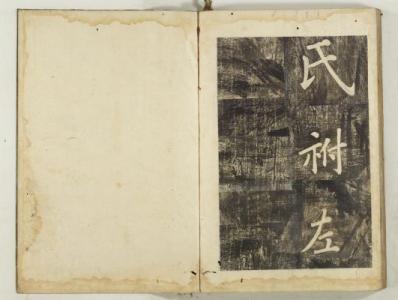 氏祔左